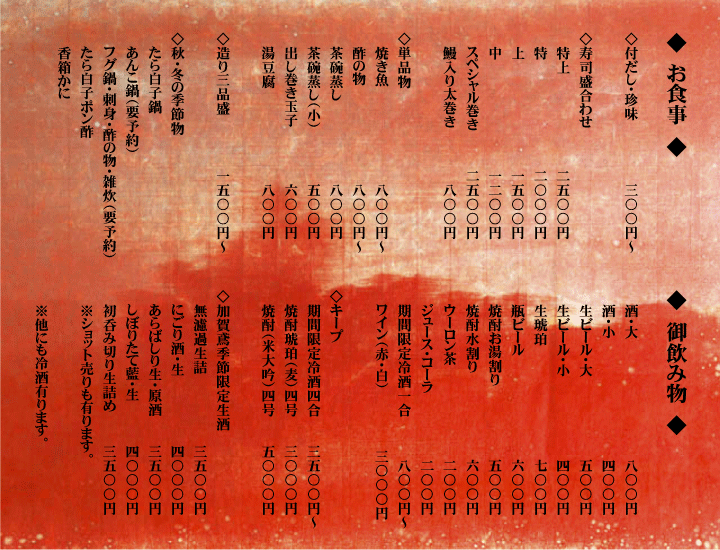 ◆ お食事 ◆
◇付だし・珍味 三〇〇円〜
◇寿司盛合わせ
特上 二五〇〇円
特 二〇〇〇円
上 一五〇〇円
中 一二〇〇円
スペシャル巻き 二五〇〇円
鰻入り太巻き 八〇〇円
◇単品物
焼き魚 八〇〇円〜
酢の物 八〇〇円〜
茶碗蒸し 八〇〇円
茶碗蒸し(小) 五〇〇円
出し巻き玉子 六〇〇円
湯豆腐 八〇〇円
◇造り三品盛 一五〇〇円〜
◇秋・冬の季節物
たら白子鍋
あんこ鍋(要予約)
フグ鍋・刺身・酢の物・雑炊(要予約)
たら白子ポン酢
香箱かに
◆ 御飲み物 ◆
酒・大 八〇〇円
酒・小 四〇〇円
生ビール・大 五〇〇円
生ビール・小 四〇〇円
生琥珀 七〇〇円
瓶ビール 六〇〇円
焼酎お湯割り 五〇〇円
焼酎水割り 六〇〇円
ウーロン茶 二〇〇円
ジュース・コーラ 二〇〇円
期間限定冷酒一合 八〇〇円〜
ワイン(赤・白) 三〇〇〇円
◇キープ
期間限定冷酒四合 三五〇〇円〜
焼酎琥珀(麦)四号 三〇〇〇円
焼酎(米大吟)四号 五〇〇〇円
◇加賀鳶季節限定生酒
無濾過生詰 三五〇〇円
にごり酒・生 四〇〇〇円
あらばしり生・原酒 三五〇〇円
しぼりたて藍・生 四〇〇〇円
初呑み切り生詰め 三五〇〇円
※ショット売りも有ります。
※他にも冷酒有ります。